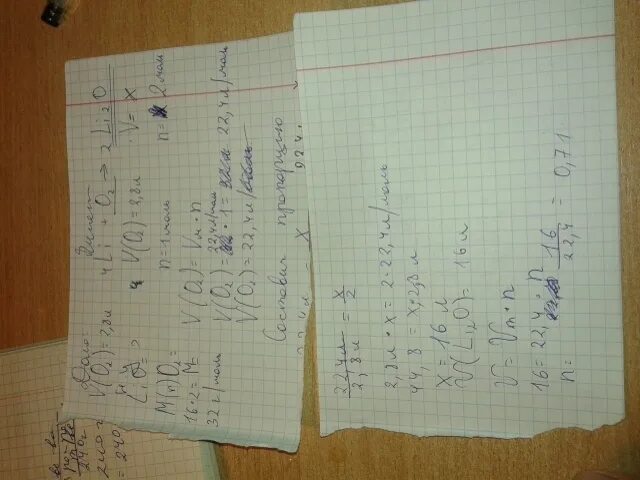 Дано:
V(O₂)=2,8л
Li₂O=?
M(n)O₂=
16·2=М=
32 г/моль
4Li + O₂ → 2Li₂O
V(O₂)=2,8л V=X
n=1моль n= 2моль
V(O₂)=Vм·n
V(O₂)= 22,4л/моль ·1= 22,4л/моль
V(O₂)=22,4л/моль
Составим пропорцию
22,4л X
22,4л/2,8л = x/2
2,8л·x=2·22,4л/моль
44,8=x·2,8л
X=16 л
V(Li₂O)=16л
V=Vm·n
16=22,4·n
n= 16/22,4 = 0,71
240г
=240